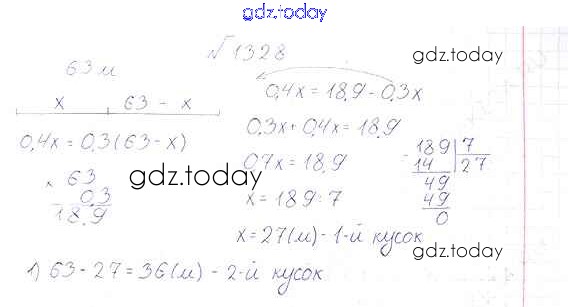 gdz.today
№1328
63 м
x 63 - x
0,4x = 0,3(63-x)
× 63
0,3
18,9
0,4x = 18,9 - 0,3x
0,3x + 0,4x = 18,9
0,7x = 18,9
x = 189:7
x = 27(м) - 1-й кусок
- 189 7
14 27
49
49
0
1) 63 - 27 = 36(м) - 2-й кусок
gdz.today
gdz.today
gdz.today